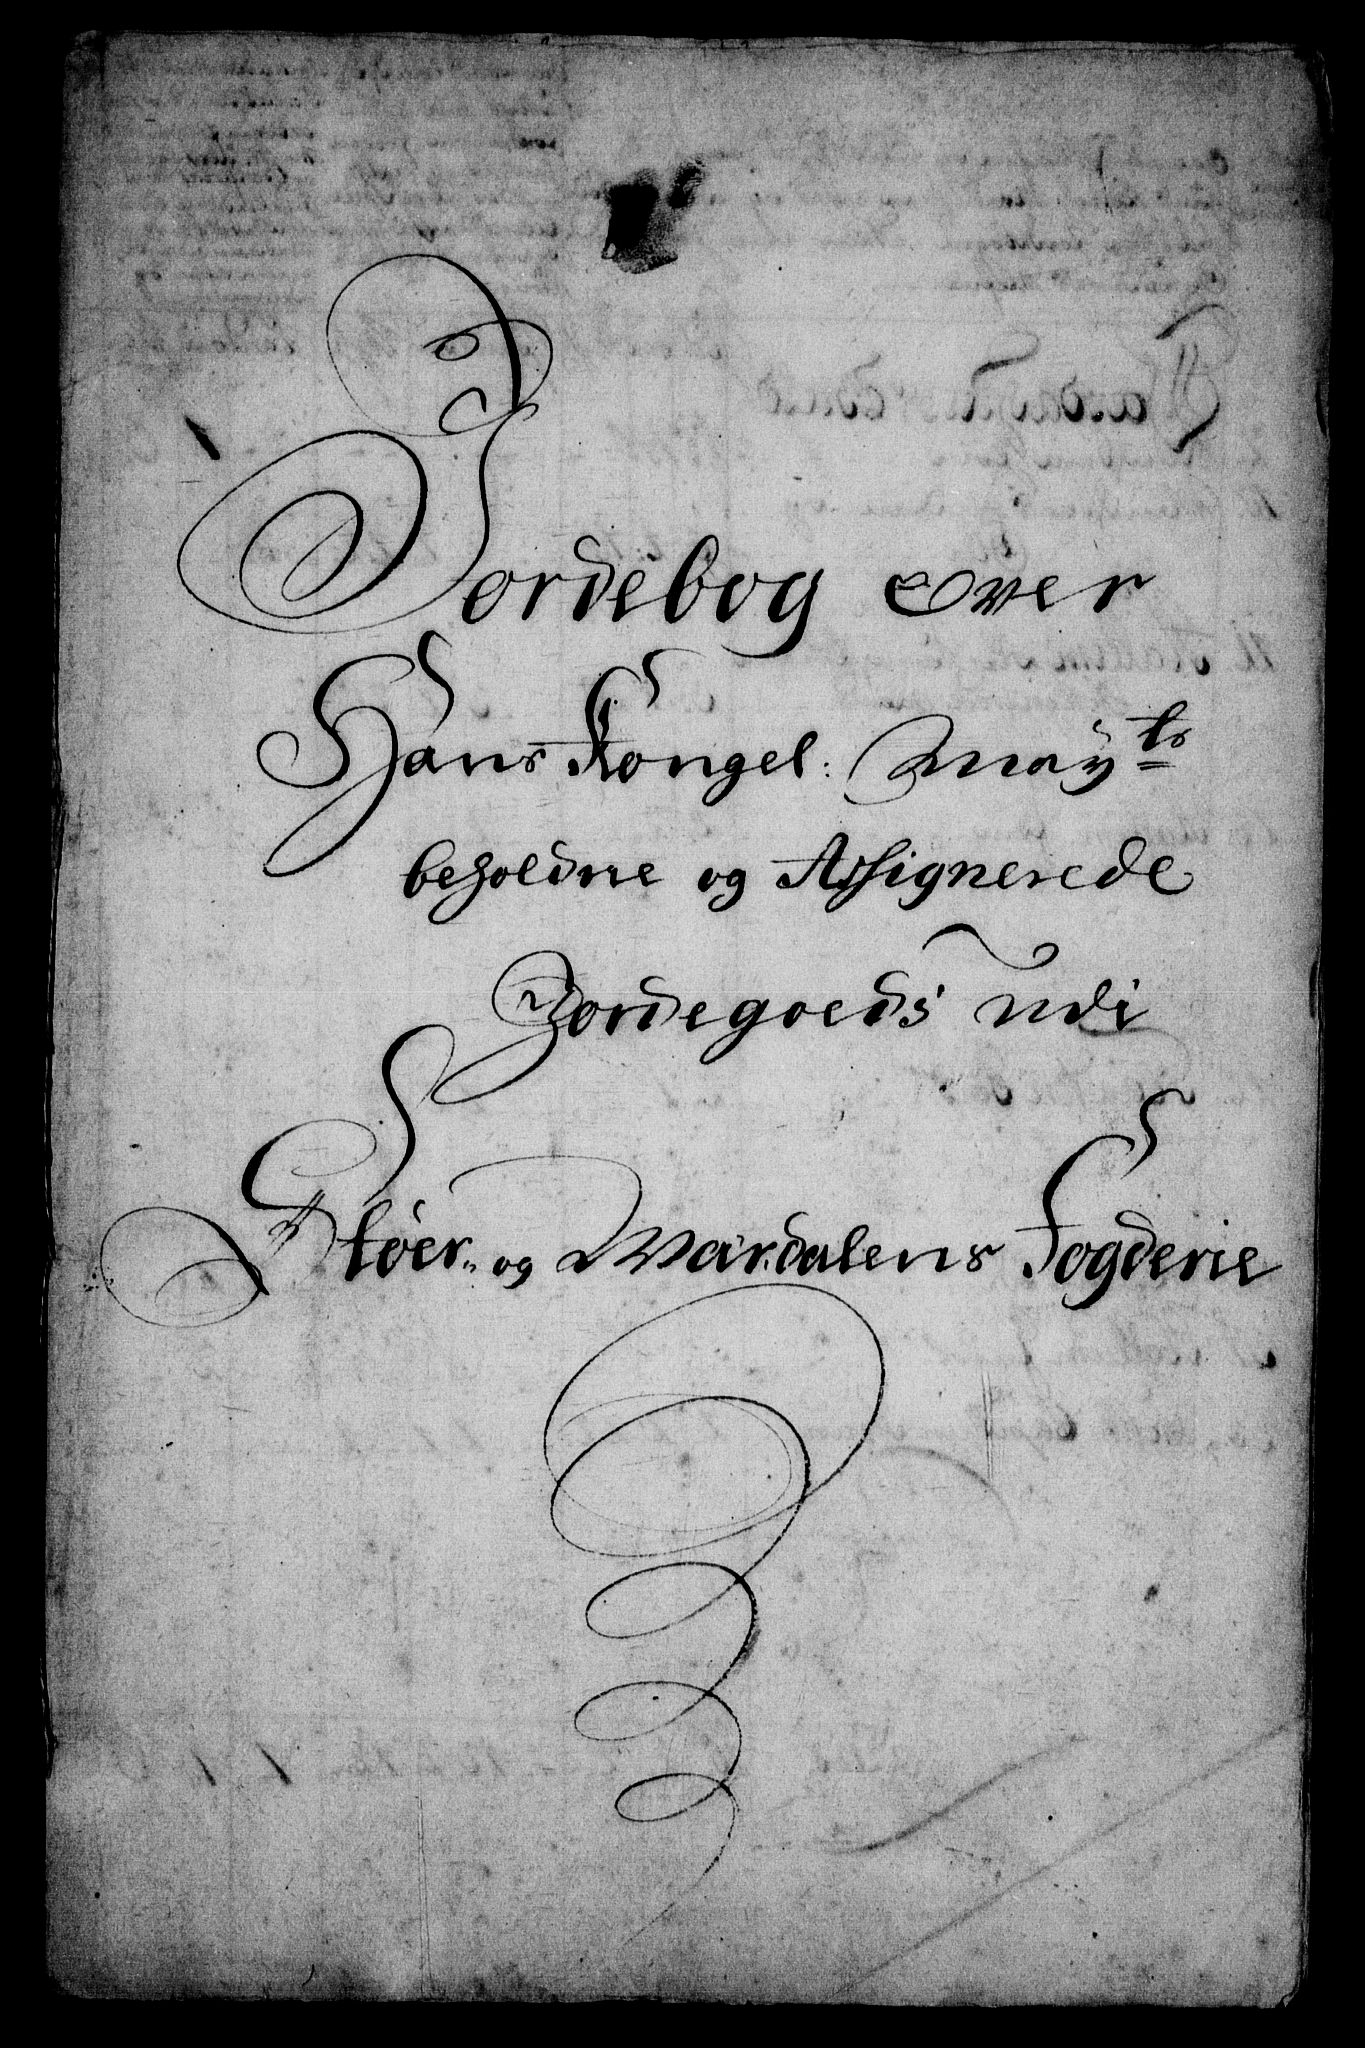 Jordebog over
Hans Kongel: Mayts
beholdne og Assignerede
Jordegoeds udi
Støer- og Wardalens Fogderie